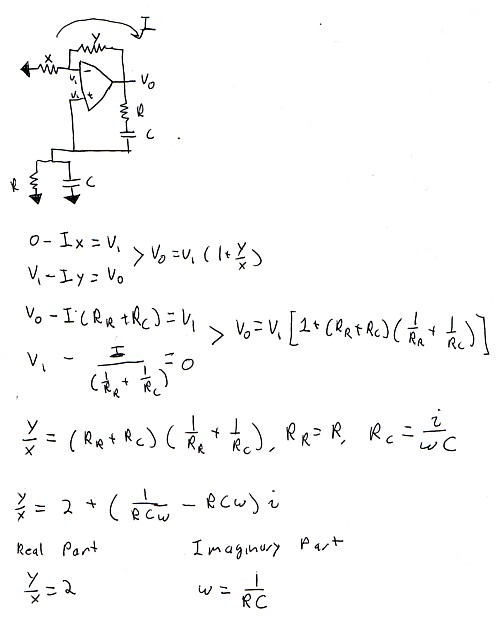 I
Y
X
V₁ -
V₀
V₁ +
R
C
R
C
0 - Ix = V₁
> V₀ = V₁ (1 + Y/X)
V₁ - Iy = V₀
V₀ - I·(R_R + R_C) = V₁
> V₀ = V₁ [1 + (R_R + R_C) (1/R_R + 1/R_C)]
V₁ - I/(1/R_R + 1/R_C) = 0
Y/X = (R_R + R_C) (1/R_R + 1/R_C), R_R = R, R_C = i/ωC
Y/X = 2 + (1/RCω - RCω) i
Real Part Imaginary Part
Y/X = 2 ω = 1/RC